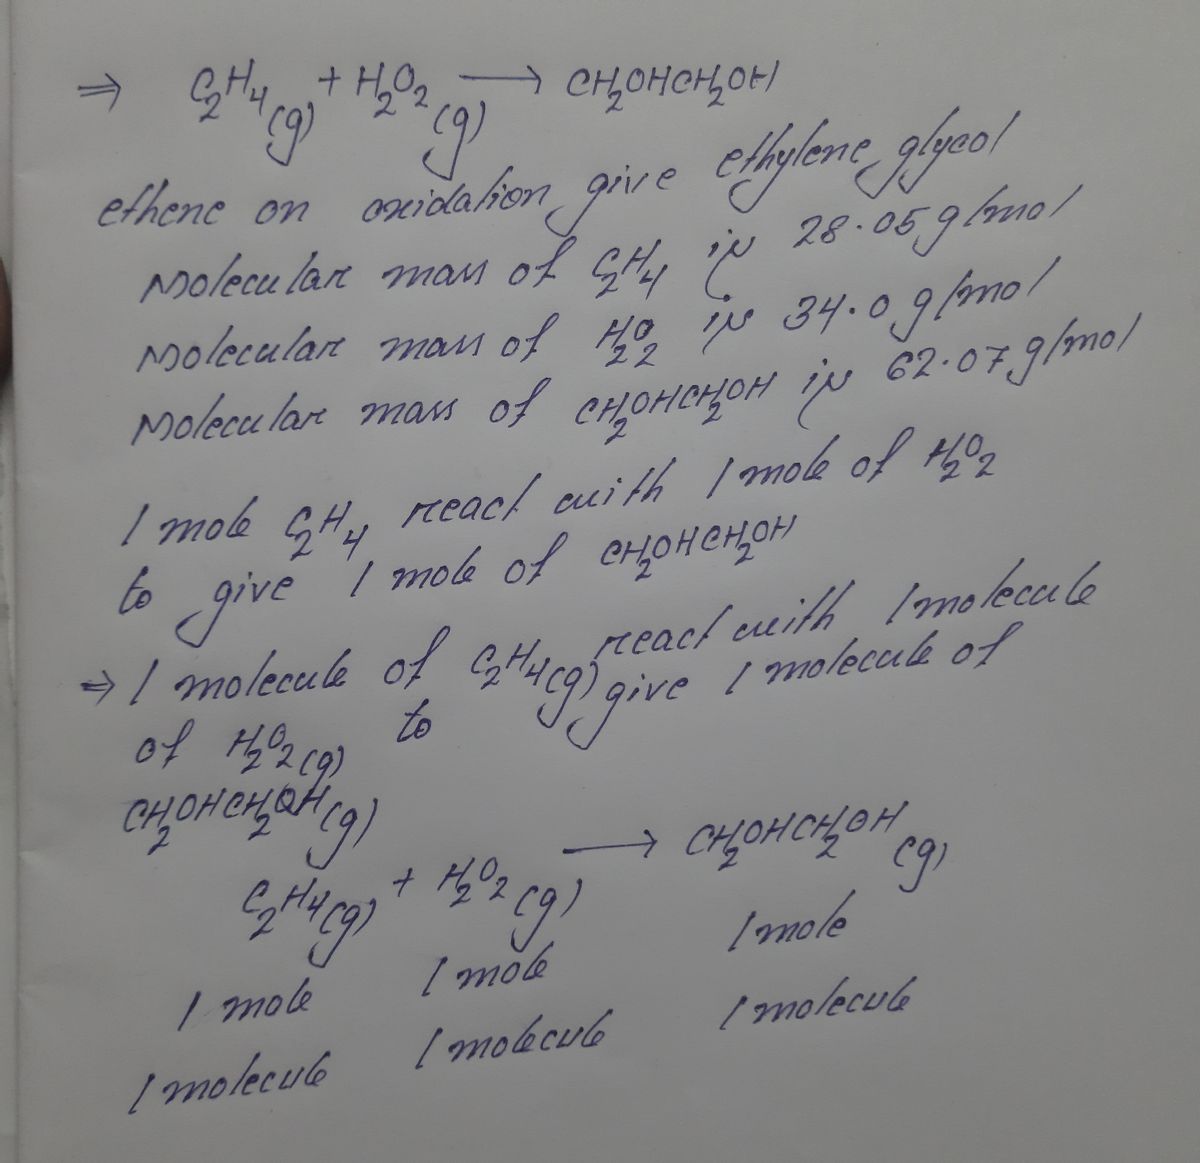 ⇒ C₂H₄(g) + H₂O₂(g) ⟶ CH₂OHCH₂OH
ethene on oxidation give ethylene glycol
Molecular mass of C₂H₄ is 28.05 g/mol
Molecular mass of H₂O₂ is 34.0 g/mol
Molecular mass of CH₂OHCH₂OH is 62.07 g/mol
1 mole C₂H₄ react with 1 mole of H₂O₂
to give 1 mole of CH₂OHCH₂OH
⇒ 1 molecule of C₂H₄(g) react with 1 molecule
of H₂O₂(g) to give 1 molecule of
CH₂OHCH₂OH(g)
C₂H₄(g) + H₂O₂(g) ⟶ CH₂OHCH₂OH(g)
1 mole 1 mole 1 mole
1 molecule 1 molecule 1 molecule